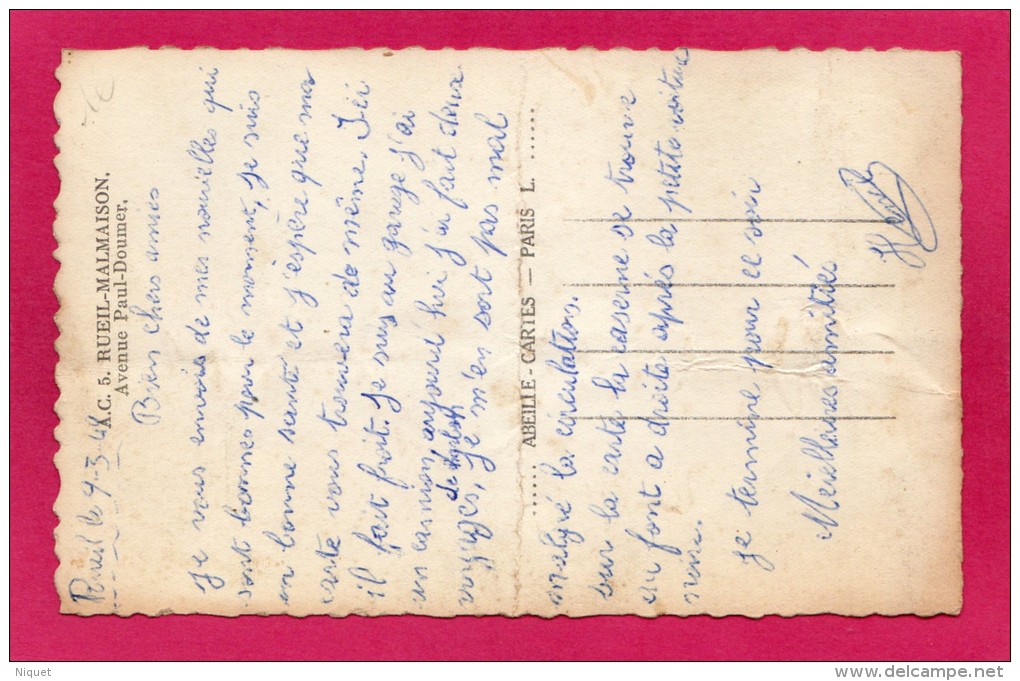 Rueil le 9-3-48
A.C. 5. RUEIL-MALMAISON,
Avenue Paul-Doumer,
Bien chers amies
Je vous envois de mes nouvelles qui
sont bonnes pour le moment, je suis
en bonne santé et j'espère que ma
carte vous trouvera de même. Ici
il fait froit. Je suis au garage j'ai
un camion aujourd hui j'ai fait deux
voyages, je m'en sort pas mal
ABEILLE - CARTES — PARIS L.
malgré la circulation.
sur la carte la caserne se trouve
au font a droite après la petite voiture
noire.
je termine pour ce soir
Meilleures amitiés
Niquet
www.delcampe.net